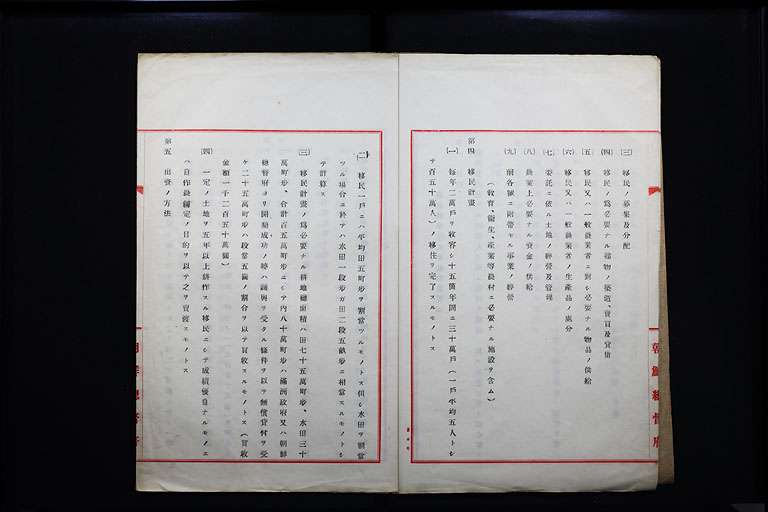 (三) 移民ノ募集及分配
(四) 移民ノ爲必要ナル建物ノ築造、賣買及貸借
(五) 移民又ハ一般農業者ニ對シ必要ナル物品ノ供給
(六) 移民又ハ一般農業者ノ生產品ノ處分
(七) 委託ニ依ル土地ノ經營及管理
(八) 農業上必要ナル資金ノ供給
(九) 前各號ニ附帶セル事業ノ經營
(敎育、衞生、產業等農村ニ必要ナル施設ヲ含ム)
第四 移民計畫
(一) 每年二萬戶ヲ收容シ十五箇年間ニ三十萬戶(一戶平均五人トシ
テ百五十萬人)ノ移住ヲ完了スルモノトス
朝鮮總督府
(二) 移民一戶ニハ平均田五町步ヲ割當ツルモノトス但シ水田ヲ割當
ツル場合ニ於テハ水田一段步ガ田二段五畝步ニ相當スルモノトシ
テ計算ス
(三) 移民計畫ノ爲必要ナル耕地總面積ハ田七十五萬町步、水田三十
萬町步、合計百五萬町步ニシテ內八十萬町步ハ滿洲政府又ハ朝鮮
總督府ヨリ開墾成功ノ時ハ讓與ヲ受クル條件ヲ以テ無償貸付ヲ受
ケ二十五萬町步ハ段當五圓ノ割合ヲ以テ買收スルモノトス(買收
金額一千二百五十萬圓)
(四) 一定ノ土地ヲ五年以上耕作スル移民ニシテ成績優良ナルモノニ
ハ自作農創定ノ目的ヲ以テ之ヲ賣渡スモノトス
第五 出資ノ方法